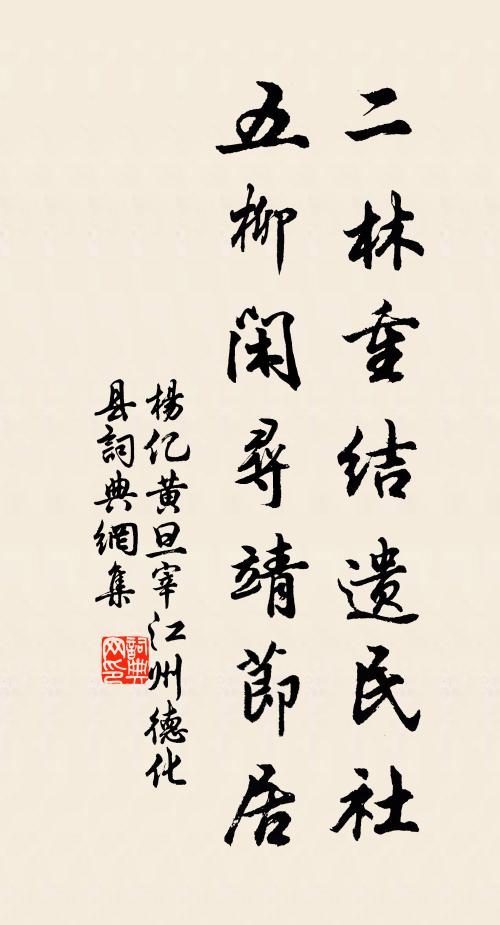 二林重结遗民社
五柳闲寻靖節居
楊亿黄旦宰江州德化
县詞典網集
詞典
网印